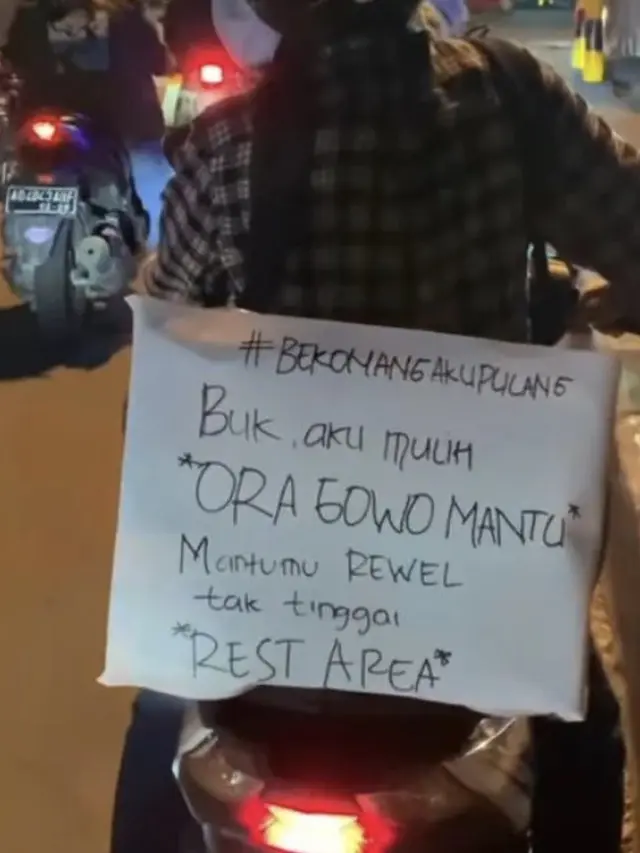 #BEKOMANGAKUPULANG
Buk, aku mulih
*ORA GOWO MANTU*
Mantumu REWEL
tak tinggal
*REST AREA*